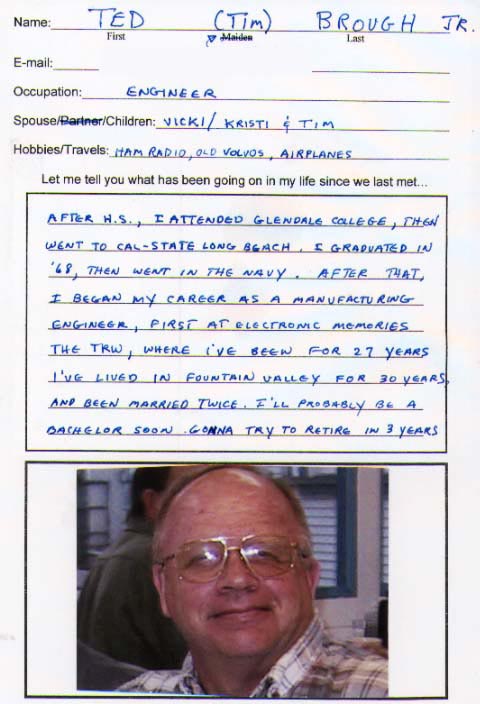 Name: TED (TIM) BROUGH JR.
First Maiden Last
E-mail:
Occupation: ENGINEER
Spouse/Partner/Children: VICKI / KRISTI & TIM
Hobbies/Travels: HAM RADIO, OLD VOLVOS, AIRPLANES
Let me tell you what has been going on in my life since we last met...
AFTER H.S., I ATTENDED GLENDALE COLLEGE, THEN
WENT TO CAL-STATE LONG BEACH. I GRADUATED IN
'68, THEN WENT IN THE NAVY. AFTER THAT,
I BEGAN MY CAREER AS A MANUFACTURING
ENGINEER, FIRST AT ELECTRONIC MEMORIES
THE TRW, WHERE I'VE BEEN FOR 27 YEARS
I'VE LIVED IN FOUNTAIN VALLEY FOR 30 YEARS,
AND BEEN MARRIED TWICE. I'LL PROBABLY BE A
BACHELOR SOON. GONNA TRY TO RETIRE IN 3 YEARS